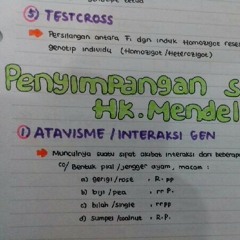 ⑤ TESTCROSS
Persilangan antara F1 dgn induk Homozigot rese
genotip individu (Homozigot/Heterozigot)
Penyimpangan S
Hk. Mendel
① ATAVISME / INTERAKSI GEN
Munculnya suatu sifat akibat interaksi dari beberap
Co/ Bentuk pial / jengger ayam, macam :
a) gerigi / rose : R.pp
b) biji / pea : rr P.
c) bilah / single : rrpp
d) sumpel / walnut : R.P.